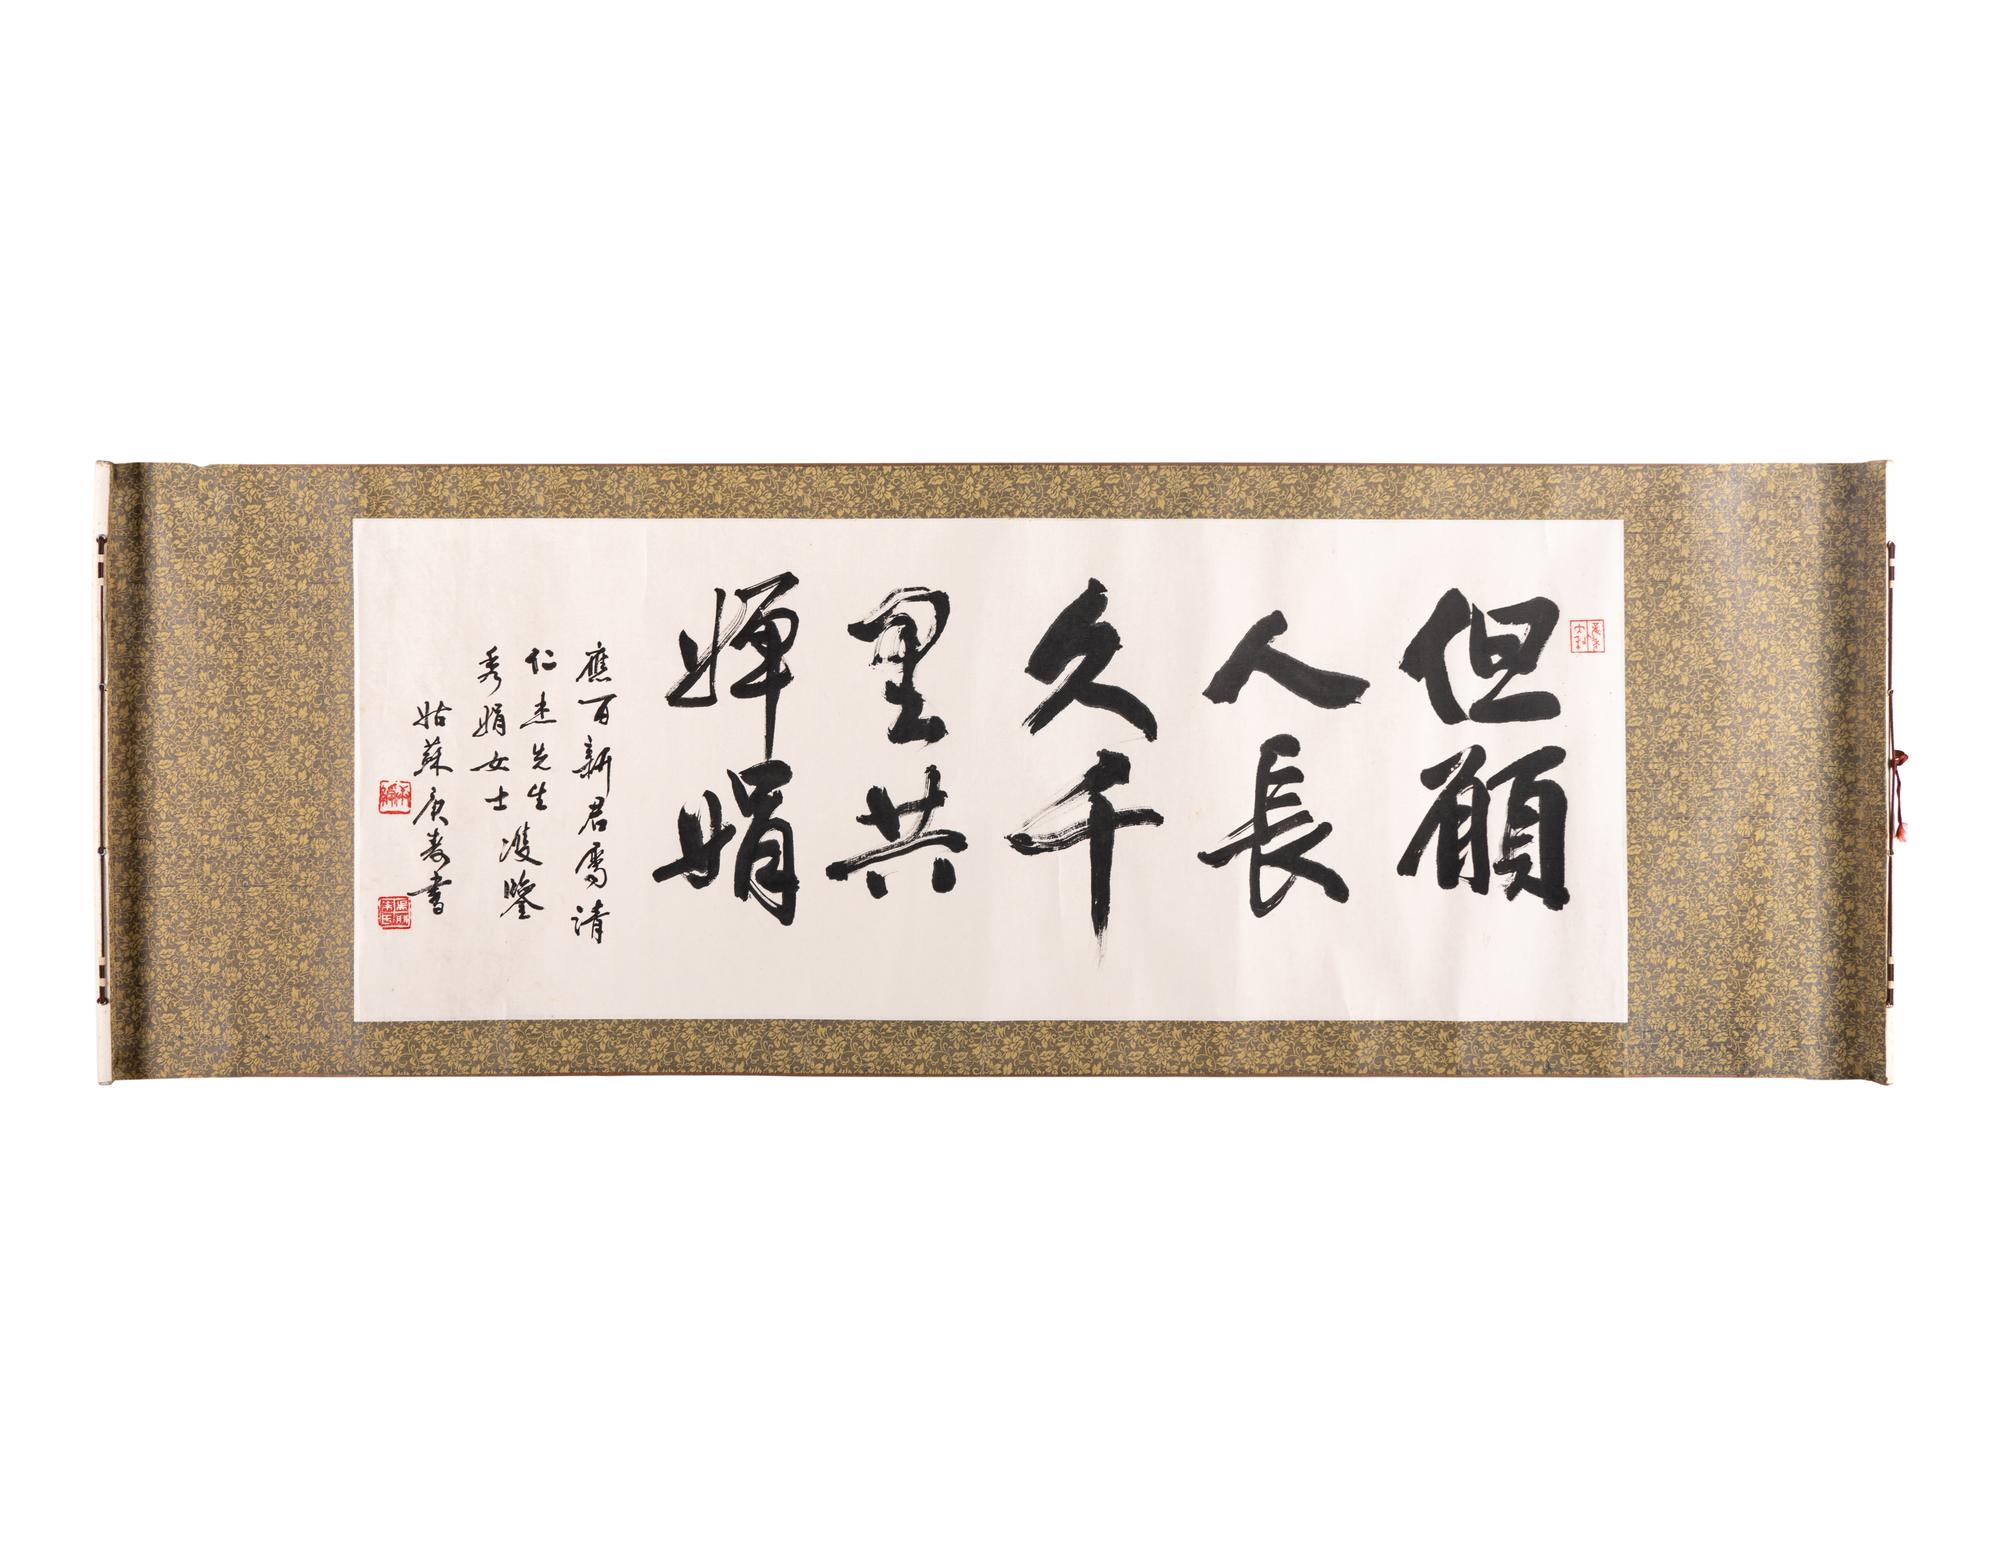 但願
人長
久千
里共
嬋娟
應百新君屬請
仁杰先生
秀娟女士
雙鑒
姑蘇庚春書